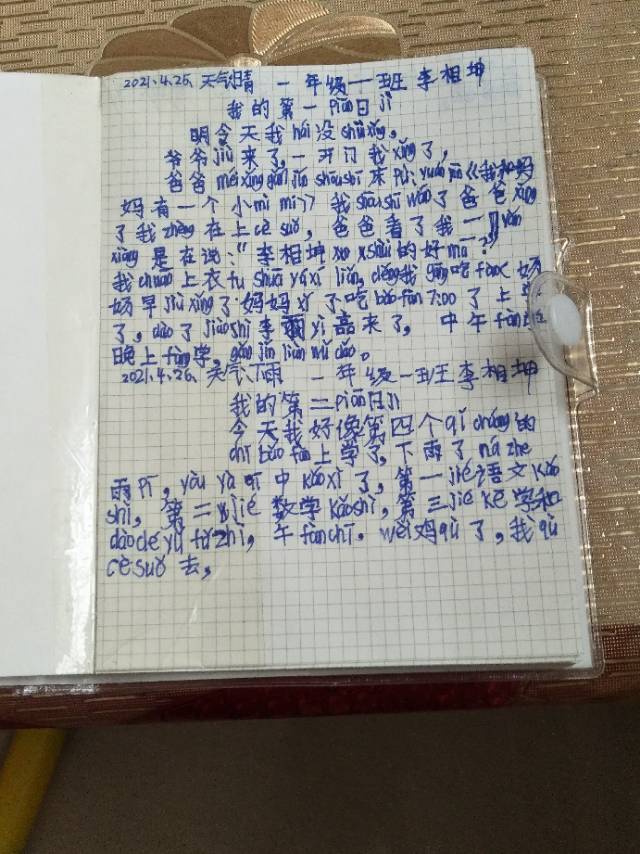 2021.4.25. 天气晴 一年级一班 李相坤
我的第一piān日jì
明今天我hái没shuì xǐng。
爷爷jiù来了,一开门我xǐng了,
爸爸méi xǐng gǎn jǐn shōu shi 床 pù: yuán jiā《我和妈
妈有一个小mì mì》我shōu shi wán了爸爸xǐng
了我zhèng在上cè suǒ,爸爸看了我一
xiàng是在说:"李相坤 shōu的好ma?"
我chuān上衣fu shuā yá xǐ liǎn, děng我gāng吃fàn 奶
奶早jiù xǐng了妈妈 了吃bǎo fàn 7:00了上
了,dào了jiào shì李雨yì gāo来了, 中午fàn
晚上fàng学,gǎn jǐn liàn wǔ dǎo。
2021.4.26. 天气下雨 一年级一班李相坤
我的第二piān日jì
今天我好像第四个qǐ chuáng的
chī bǎo fàn上学了,下雨了ná zhe
雨pī, yào yà qī中kǎo xì了,第一jié语文kǎo
shì,第二jié数学kǎo shì,第三jié kē学和
dào dé yǔ fǎ zhì, 午fàn chī. wèi鸡qù了,我qù
cè suǒ去,